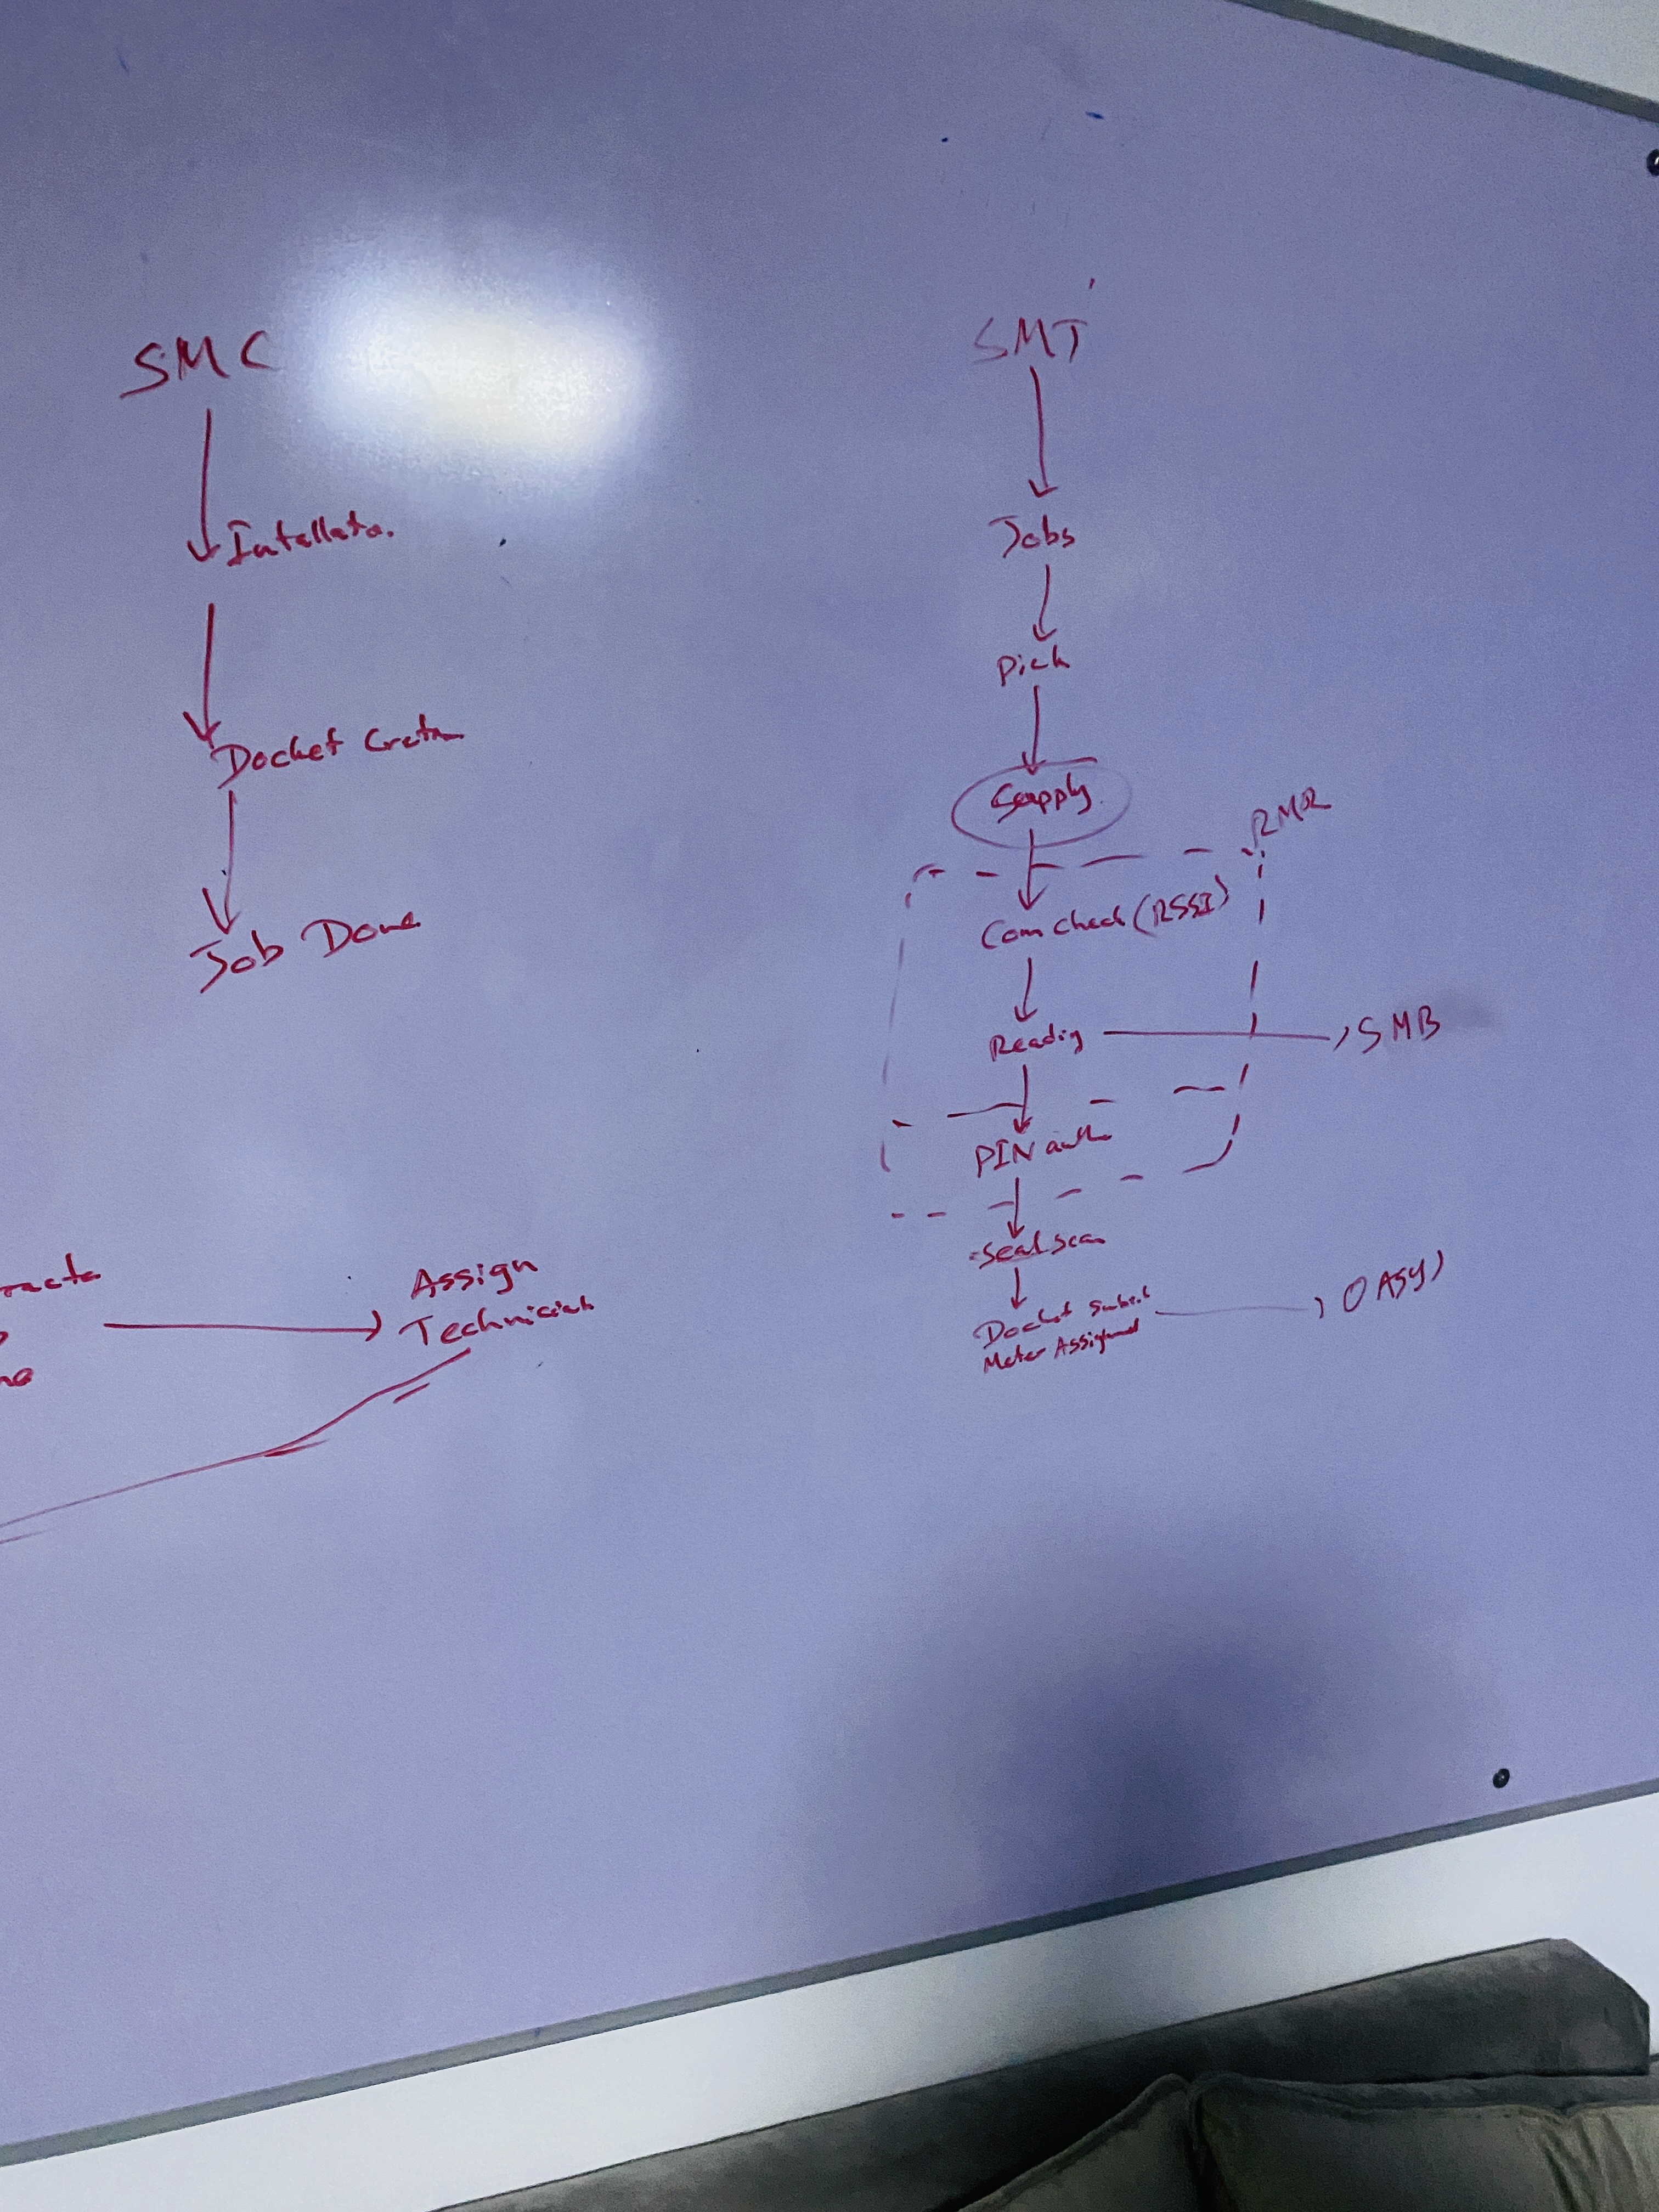 SMC
Intallato.
Docket Creatn
Job Done
Assign
Technician
SMT
Jobs
Pick
Supply
RMR
Com check (RSSI)
Readig
SMB
PIN auth
Seal scan
Docket Submit
Meter Assigned
OASYS